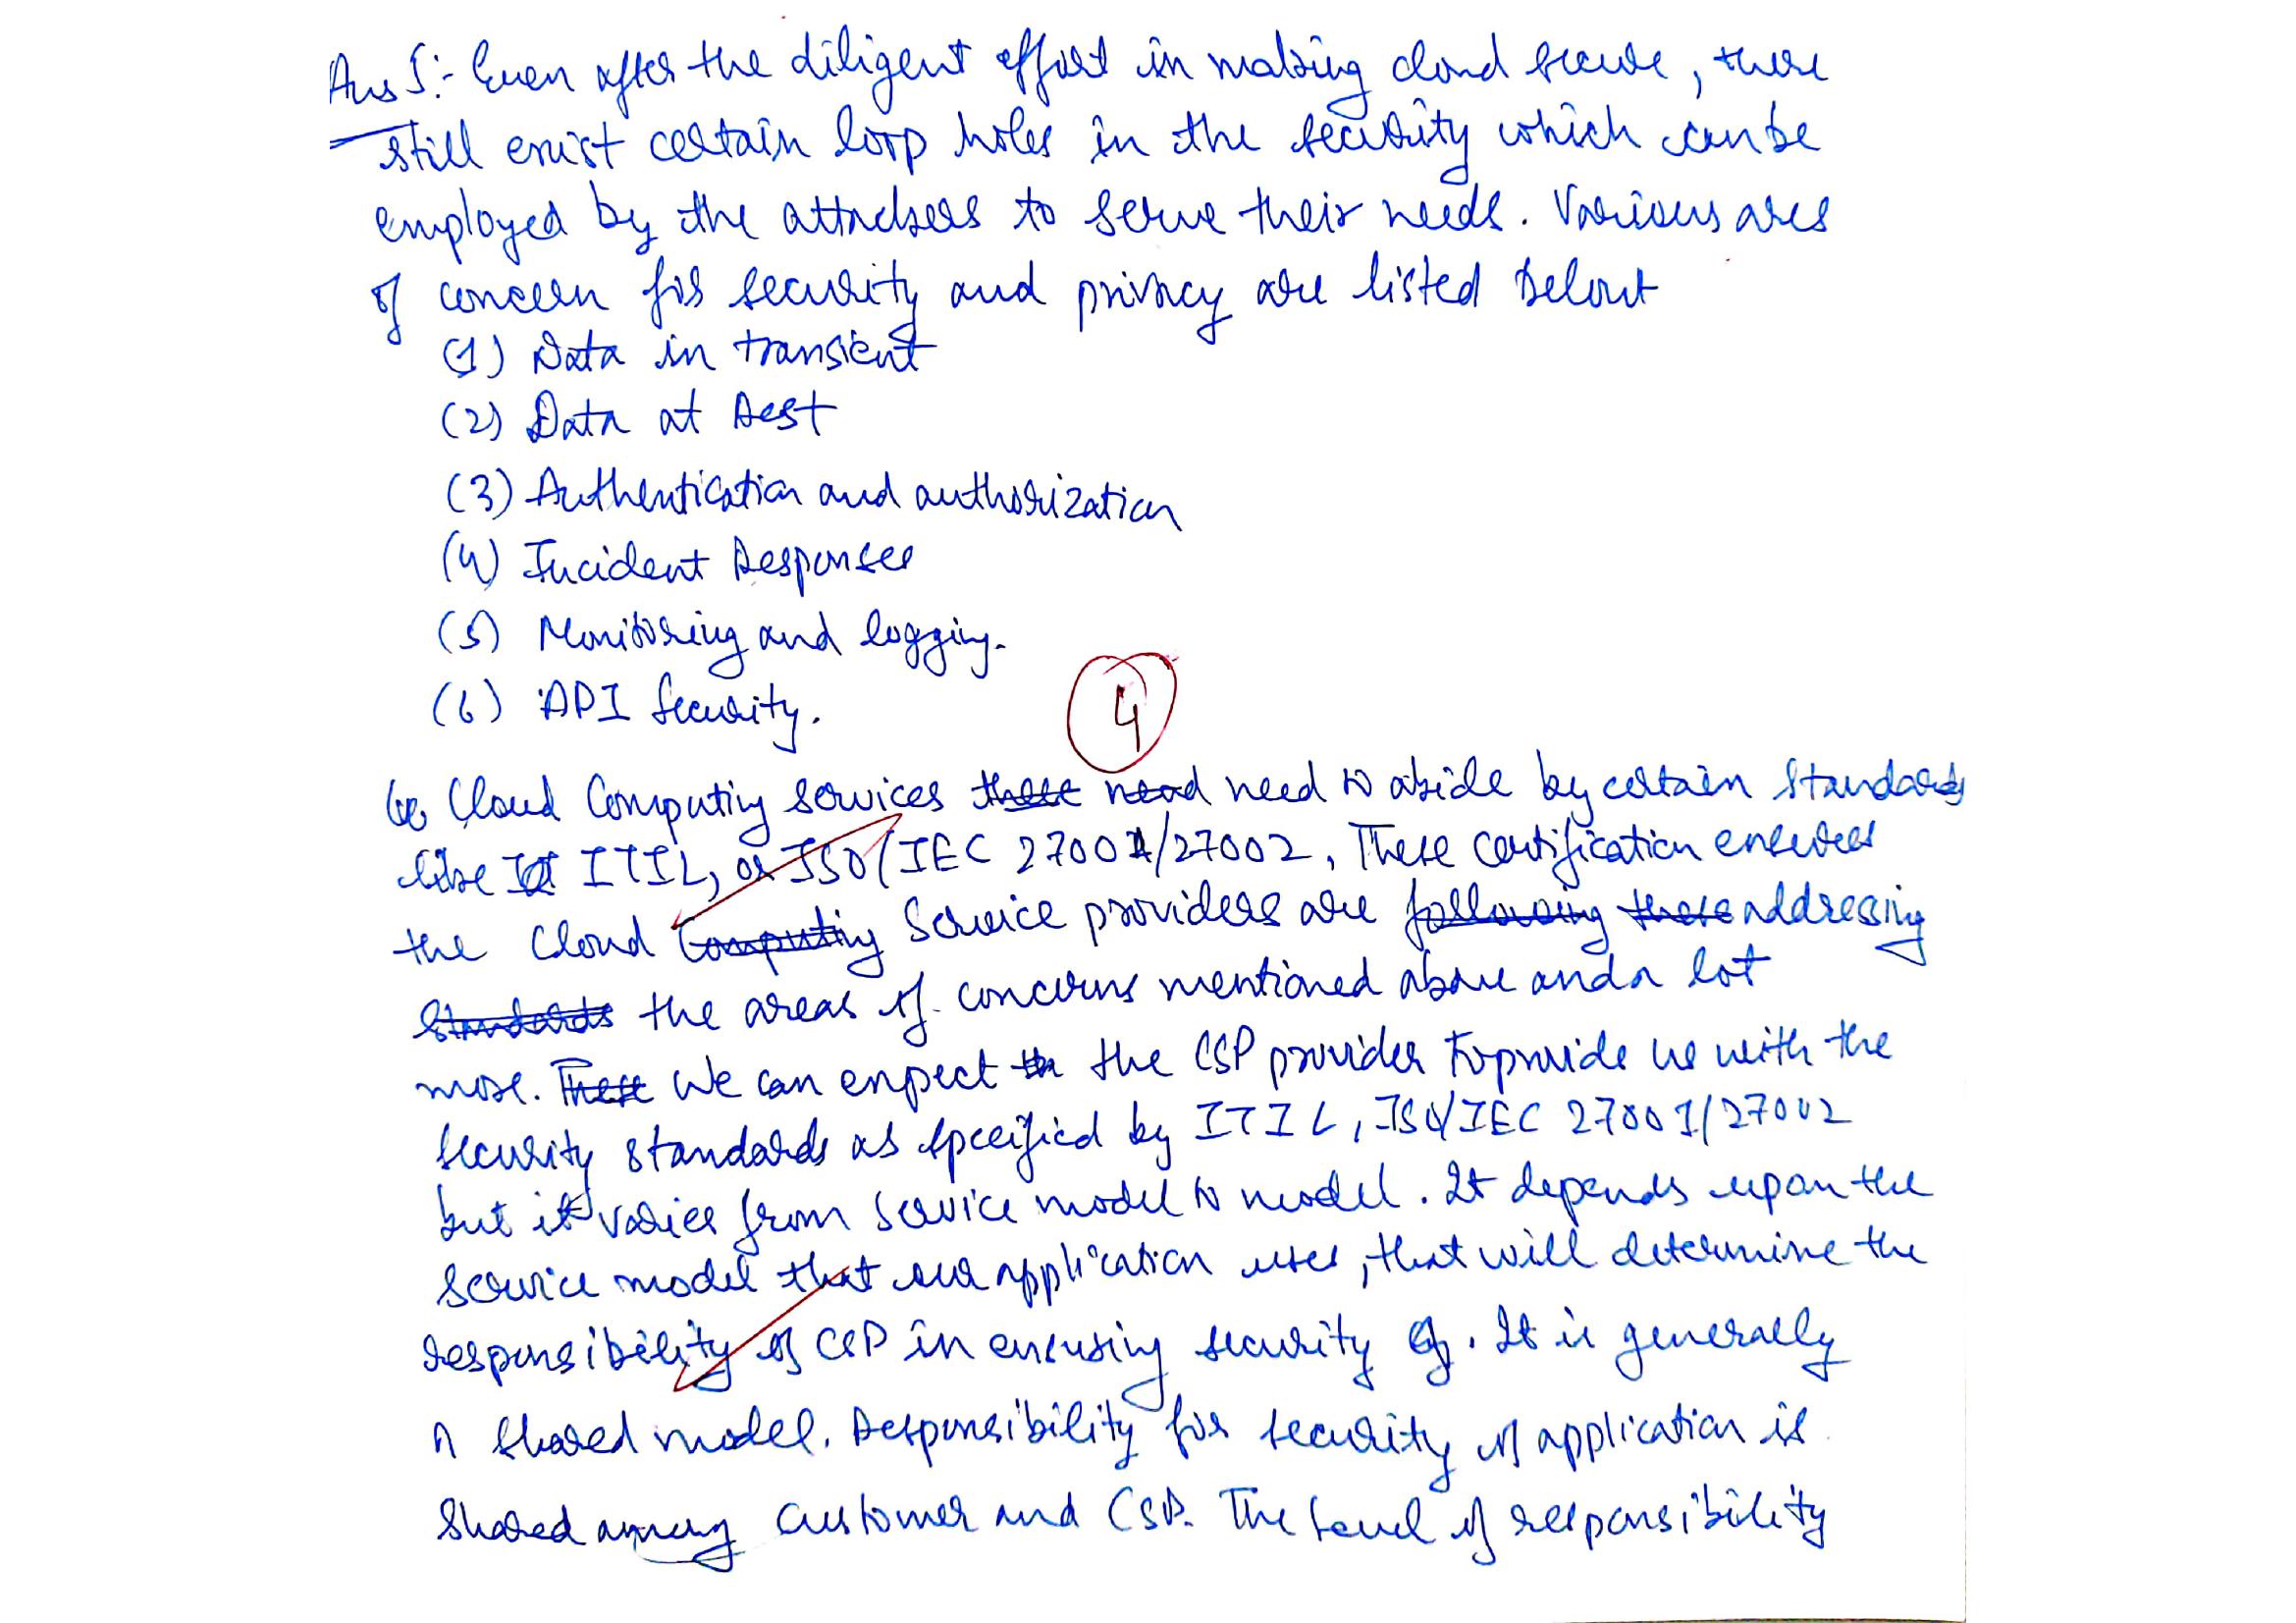 Ans 5:- Even after the diligent effort in making cloud secure, there
still exist certain loop holes in the security which can be
employed by the attackers to serve their needs. Various ares
of concern for security and privacy are listed below
(1) Data in transient
(2) Data at Rest
(3) Authentication and authorization
(4) Incident Responses
(5) Monitoring and logging.
(6) API Security.
4
Cloud Computing services these need need to abide by certain standards
like ITIL, or ISO/IEC 27001/27002, These certification ensures
the Cloud Computing Service providers are following these addressing
standards the areas of concerns mentioned above and a lot
more. These We can expect the CSP provider to provide us with the
security standards as specified by ITIL, ISO/IEC 27001/27002
but it varies from service model to model. It depends upon the
service model that our application uses, that will determine the
responsibility of CSP in ensuring security of. It is generally
a shared model. Responsibility for security of application is
shared among customer and CSP. The level of responsibility